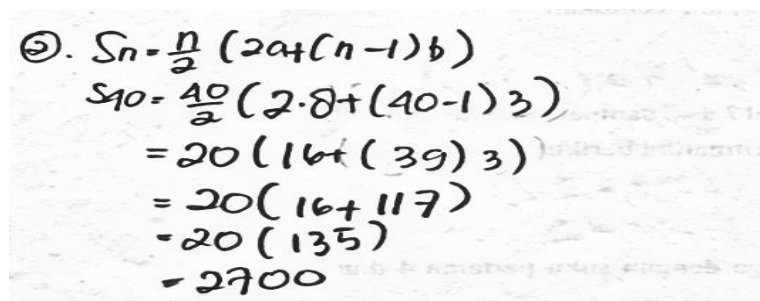 ②. Sn = n/2 (2a+(n-1)b)
S40 = 40/2 (2·8+(40-1)3)
= 20(16+(39)3)
= 20(16+117)
= 20(135)
= 2700